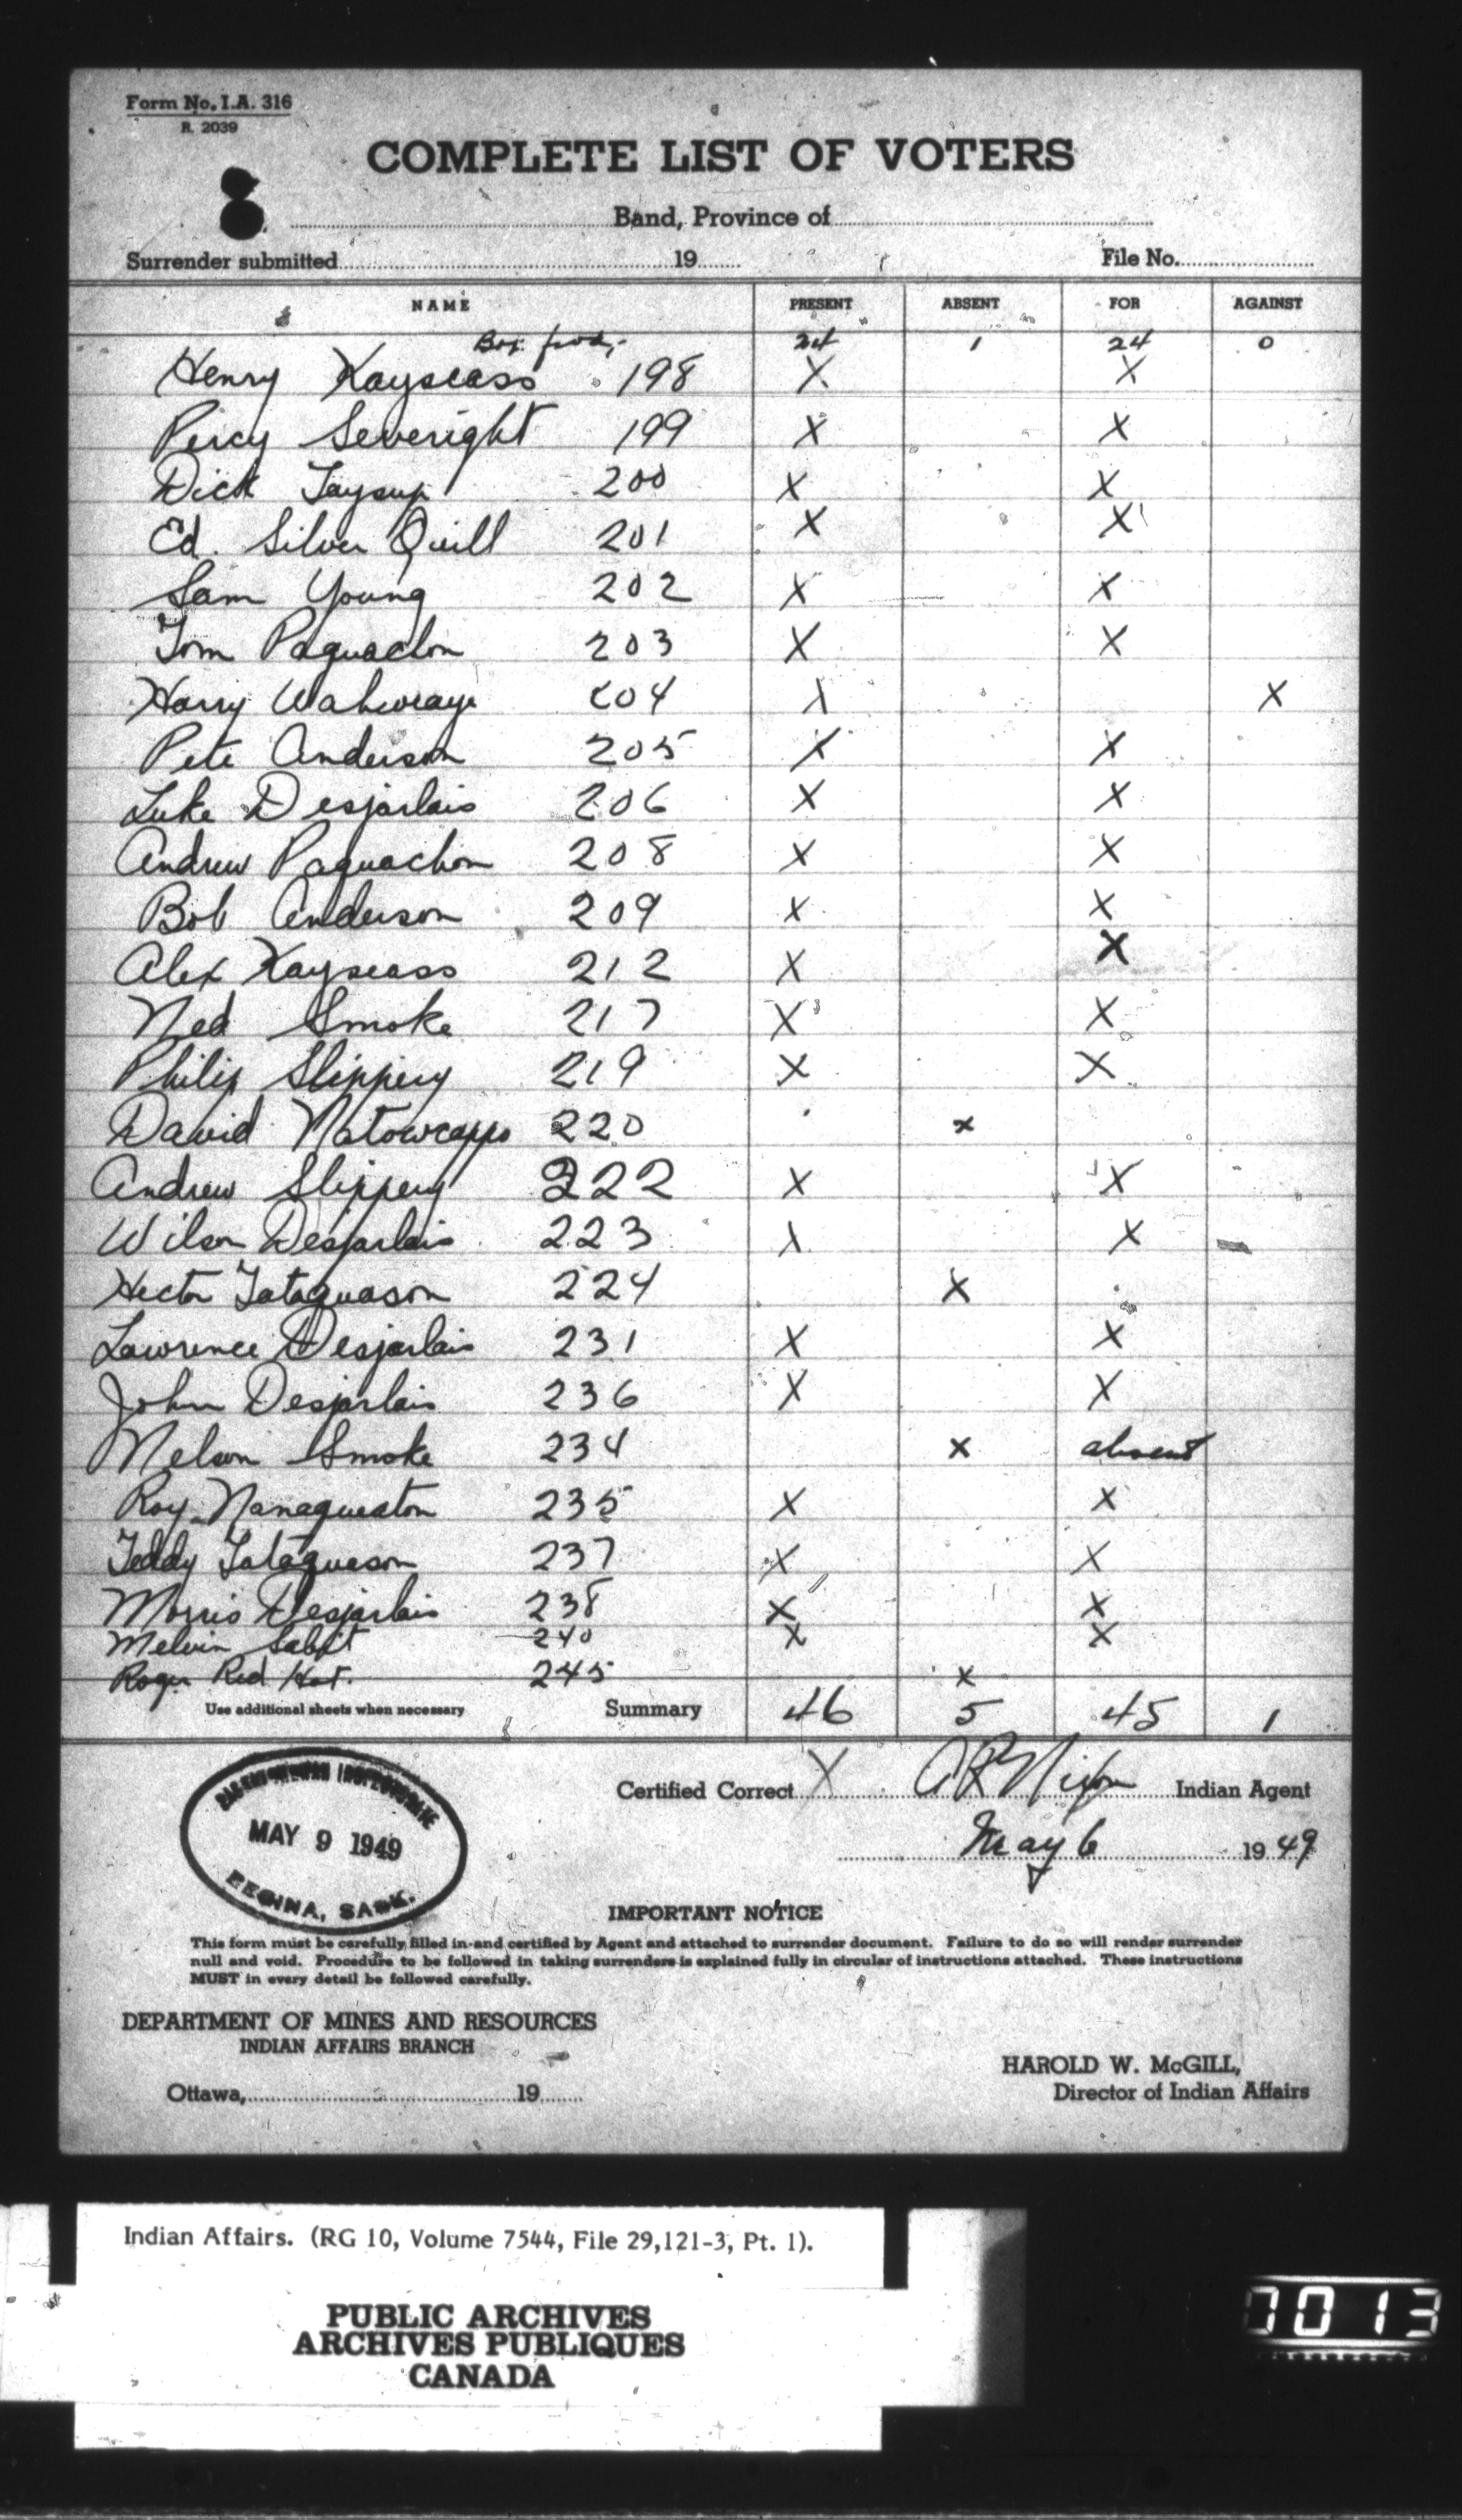 Form No. I.A. 316
R. 2039
COMPLETE LIST OF VOTERS
Band, Province of
Surrender submitted 19 File No.
NAME PRESENT ABSENT FOR AGAINST
24 1 24 0
Henry Kayseass 198 X X
Percy Severight 199 X X
Dick Taysup 200 X X
Ed. Silver Quill 201 X X
Sam Young 202 X X
Tom Paquachon 203 X X
Harry Wahweaye 204 X X
Pete Anderson 205 X X
Luke Desjarlais 206 X X
Andrew Paquachon 208 X X
Bob Anderson 209 X X
Alex Kayseass 212 X X
Ned Smoke 217 X X
Philip Slippery 219 X X
David Natowcappo 220 x
Andrew Slippery 222 X X
Wilson Desjarlais 223 X X
Hector Tataquason 224 X
Lawrence Desjarlais 231 X X
John Desjarlais 236 X X
Nelson Smoke 234 x absent
Roy Nanaqueaton 235 X X
Teddy Tataqueson 237 X X
Morris Desjarlais 238 X X
Melvin 240 X X
Roger Red Hat. 245 x
Use additional sheets when necessary Summary 46 5 45 1
Certified Correct X Indian Agent
May 6 1949
MAY 9 1949
REGINA, SASK.
IMPORTANT NOTICE
This form must be carefully filled in and certified by Agent and attached to surrender document. Failure to do so will render surrender
null and void. Procedure to be followed in taking surrenders is explained fully in circular of instructions attached. These instructions
MUST in every detail be followed carefully.
DEPARTMENT OF MINES AND RESOURCES
INDIAN AFFAIRS BRANCH
HAROLD W. McGILL,
Ottawa, 19 Director of Indian Affairs
Indian Affairs. (RG 10, Volume 7544, File 29,121-3, Pt. 1).
PUBLIC ARCHIVES
ARCHIVES PUBLIQUES
CANADA
0013